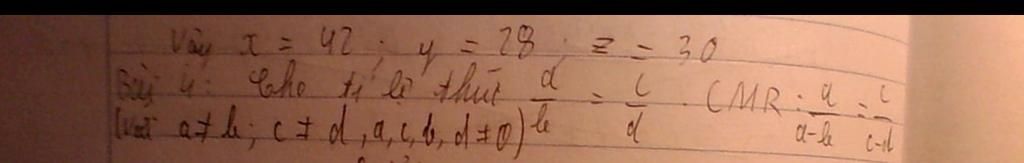 Vậy x = 42 ; y = 28 ; z = 30
Bài 4: Cho tỉ lệ thức a/b = c/d . CMR : a/a-b = c/c-d
(với a ≠ b ; c ≠ d , a, c, b, d ≠ 0)